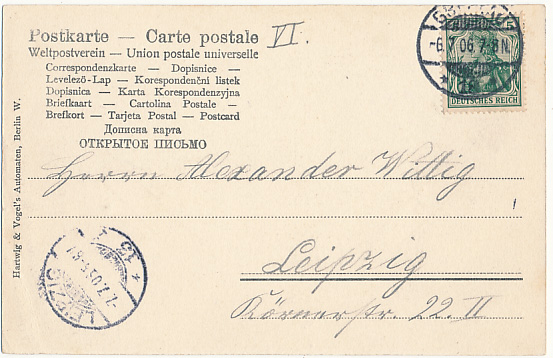 Postkarte — Carte postale
VI.
Weltpostverein — Union postale universelle
Correspondenzkarte — Dopisnice —
Levelező-Lap — Korespondenční lístek
Dopisnica — Karta Korespondenzyjna
Briefkaart — Cartolina Postale —
Brefkort — Tarjeta Postal — Postcard
Дописна карта
ОТКРЫТОЕ ПИСЬМО
-6.7.06.7-8N.
5
DEUTSCHES REICH
Herrn Alexander Wittig
Leipzig
Körnerstr. 22 II
LEIPZIG
Hartwig & Vogel's Automaten, Berlin W.